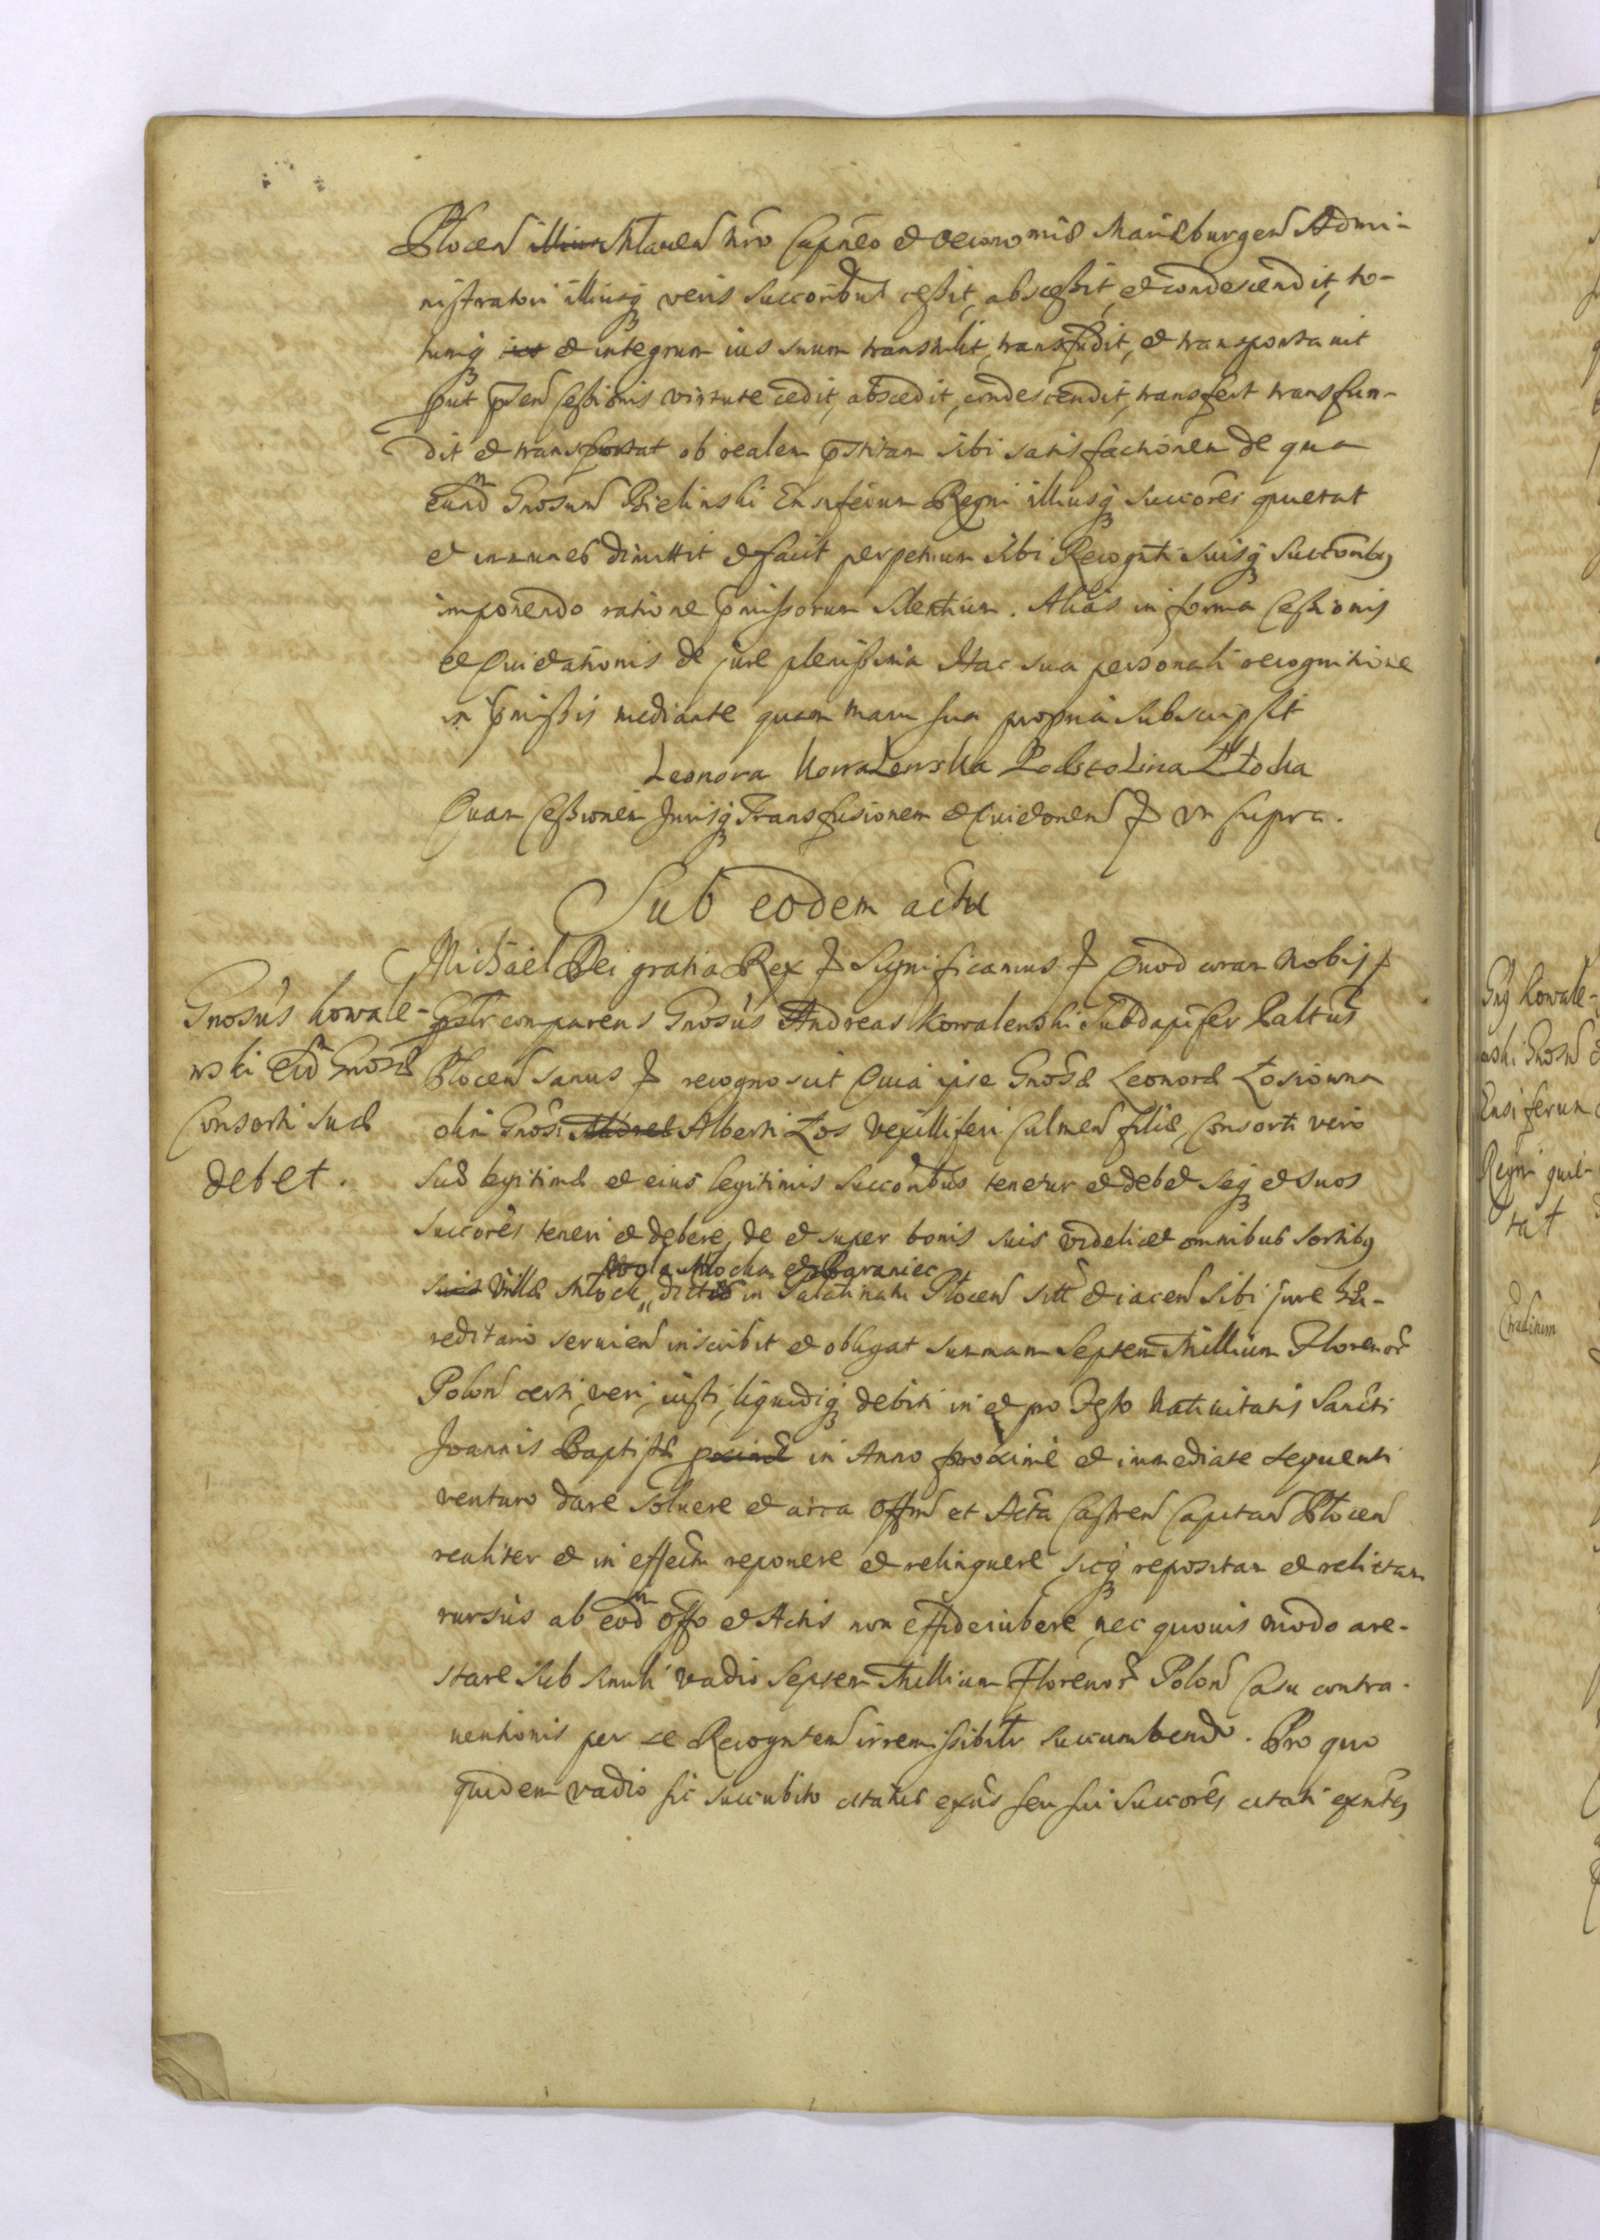 Plocen Mlauen nro Capneo et oeconomiæ Mariæburgen Admi-
nistratori illiusq veris Succoribus cessit, abscessit, et condescendit, to-
tumq et integrum ius suum transtulit, transfudit, et transportauit
put pnsen Cessionis virtute cedit, abscedit, condescendit, transfert transfun-
dit et transportat ob realem pstitam sibi satisfactionem de qua
eund Gnosum Bielinski Ensiferum Regni illiusq Succores quietat
et immunes dimittit et facit perpetuum sibi Recognti suisq Succoribus
imponendo ratione pmissorum silentium. Alias in forma Cessionis
et Quietationis de jure plenissima Hac sua personali recognitione
in pmissis mediante quam manu sua propria subscripsit
Leonora Kowalewska Podstolina Płocka
Quam Cessionem Jurisq Transfusionem et Quietonem ut supra.
Sub eodem actu
Michael Dei gratia Rex Significamus Quod coram Nobis
Gnosus Kowale-
wski eid Gnosæ
Consorti suæ
debet.
comparens Gnosus Andreas Kowalewski Subdapifer Paltus
Plocen sanus recognoscit Quia ipse Gnosæ Leonoræ Łosiowna
olim Gnosi Alberti Łos Vexilliferi Culmen filiæ, Consorti vero
suæ legitimæ et eius legitimis Succoribus tenetur et debet seq et suos
Succores teneri et debere, de et super bonis suis videlicet omnibus sortibus
Wola Mlocka et Pograniec
suis Villæ Mlock dictis in Palatinatu Plocen sitt et iacen sibi jure hæ-
reditario seruien inscribit et obligat summam Septem Millium Florenor
Polon certi, veri, iusti, liquidiq debiti in et pro Festo Natiuitatis Sancti
Joannis Baptistæ in Anno proxime et immediate sequenti
venturo dare soluere et circa Offm et Acta Castren Capitan Plocen
realiter et in effectu reponere et relinquere sicq repositam et relictam
rursus ab eod Offo et Actis non effideiubere nec quouis modo are-
stare sub simili vadio Septem Millium Florenor Polon Casu contra-
uentionis per se Recognten irremissibilr succumbendo. Pro quo
quidem vadio sic succubito citatus seu sui Succores citati
Gnosus Kowale-
wski Gnosum
Ensiferum
Regni quie-
tat
Extraditum